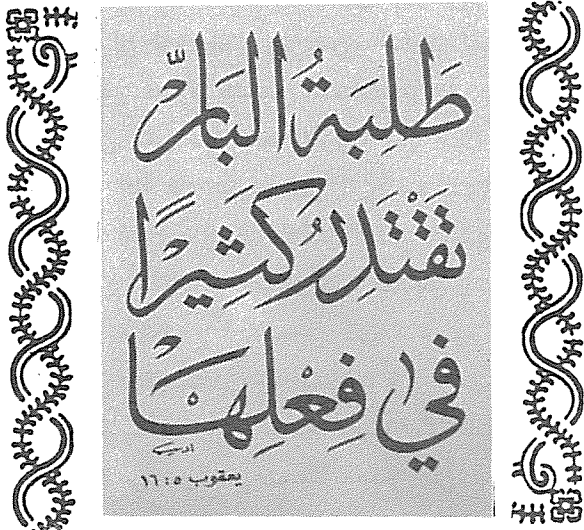 طَلِبَةُ البَارِّ
تَقْتَدِرُ كَثِيرًا
في فِعْلِهَا
يعقوب ٥ : ١٦